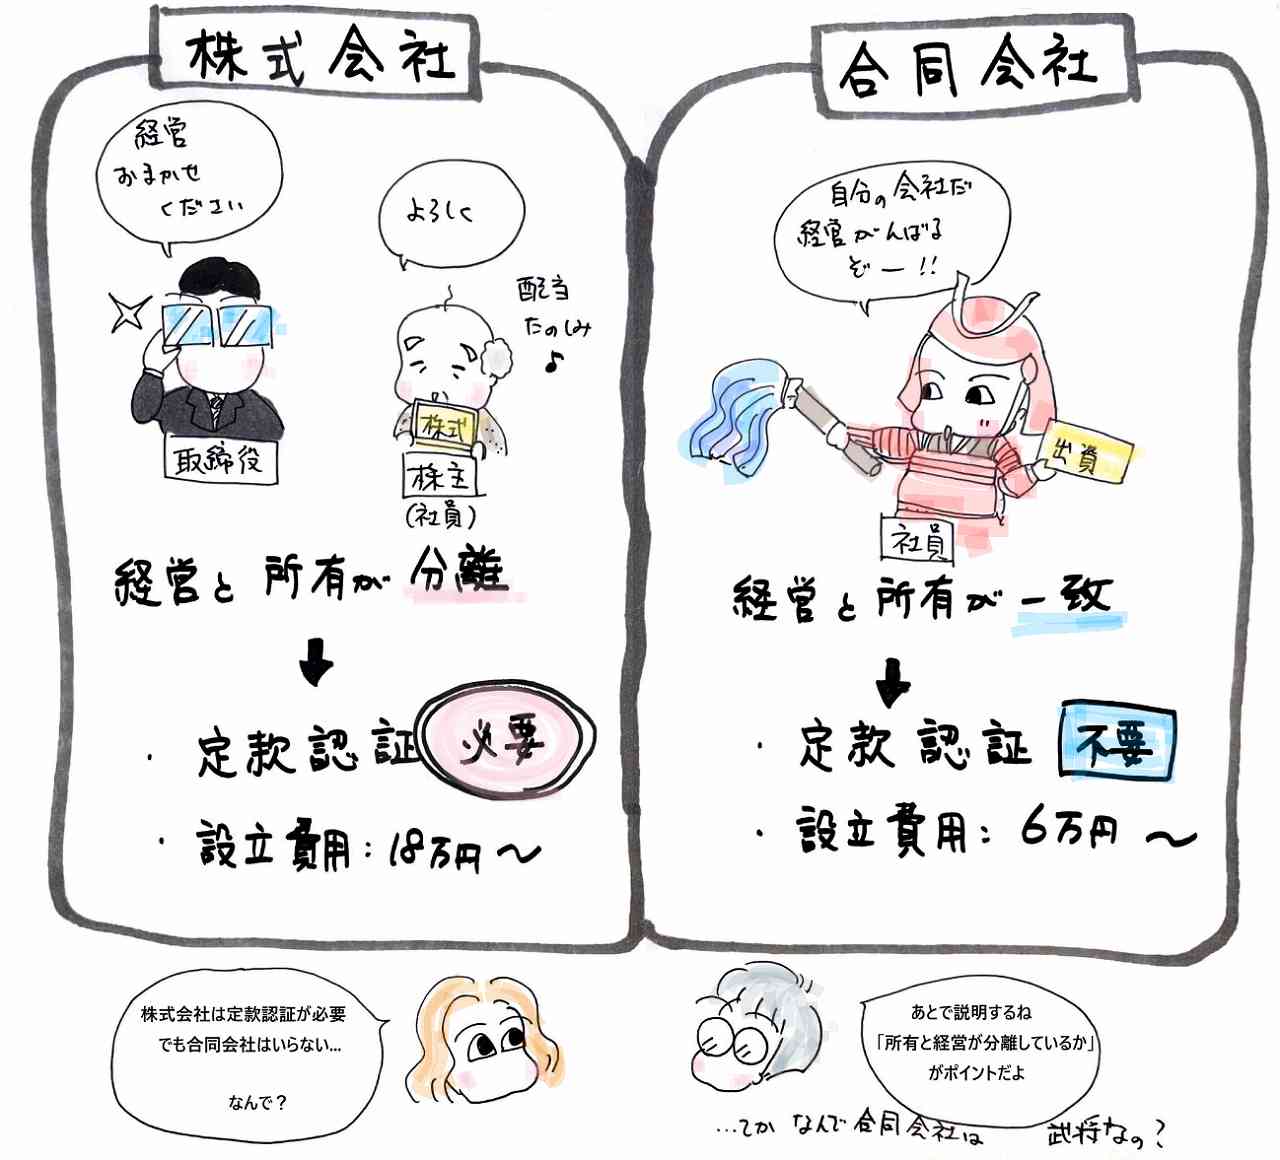 株式会社
経営
おまかせ
ください
よろしく
配当
たのしみ
♪
株式
取締役
株主
(社員)
経営と所有が分離
↓
・定款認証必要
・設立費用:18万円〜
合同会社
自分の会社だ
経営がんばる
ぞー!!
出資
社員
経営と所有が一致
↓
・定款認証 不要
・設立費用:6万円〜
株式会社は定款認証が必要
でも合同会社はいらない...
なんで?
あとで説明するね
「所有と経営が分離しているか」
がポイントだよ
...てか なんで合同会社は 武将なの?